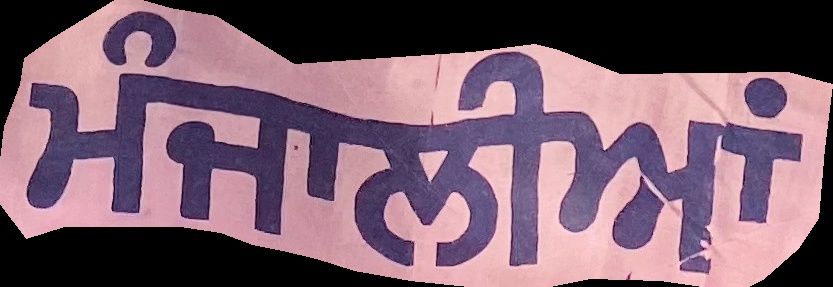 ਮੰਜਾਲੀਆਂ